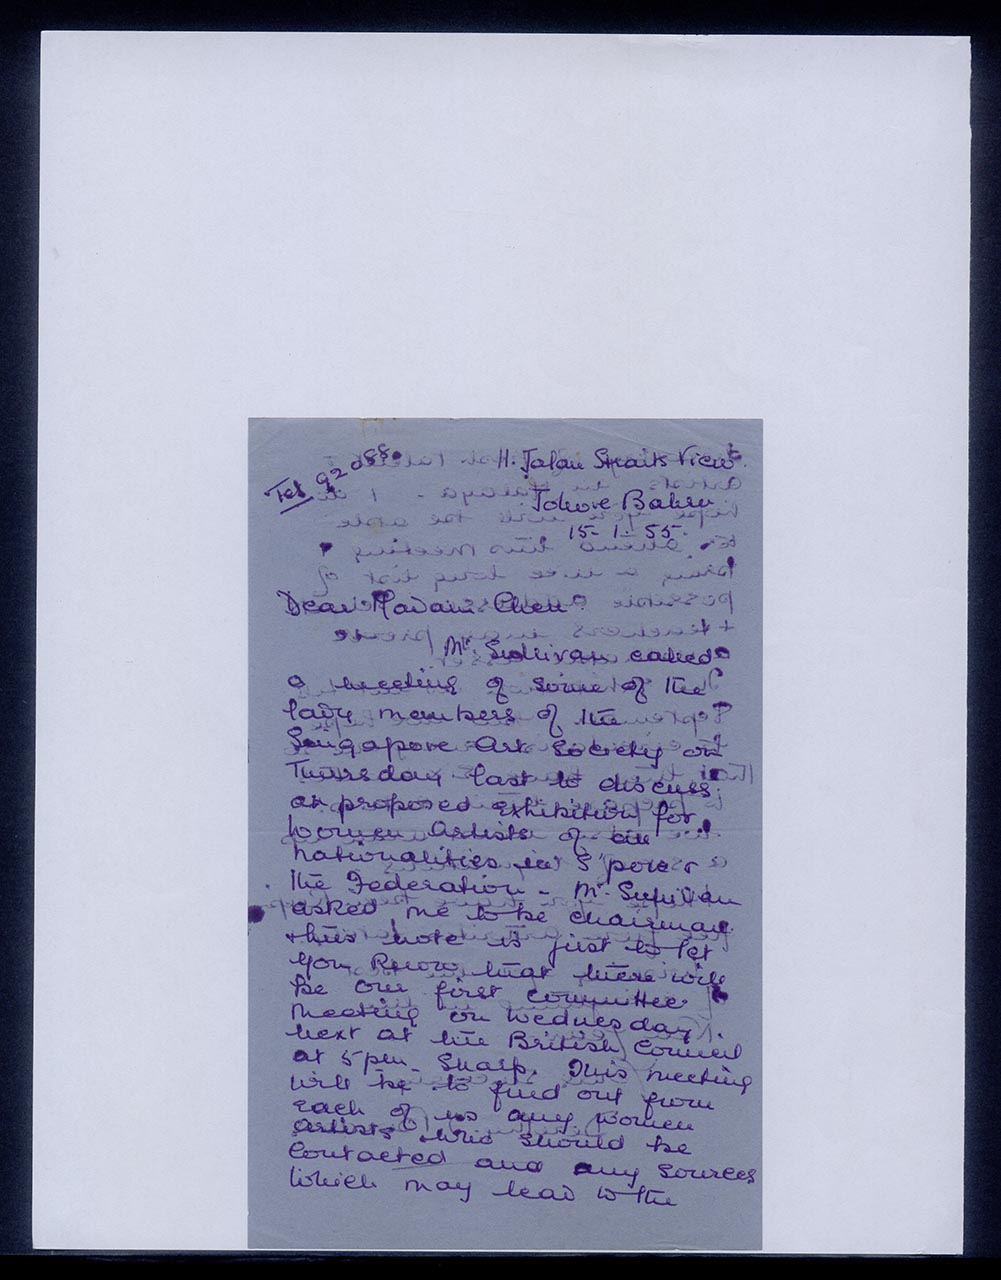 Tel 92088.
H. Jalan Straits View
Johore Bahru
15-1-55.
Dear Madam Chen
Mr. Sullivan called
a meeting of some of the
lady members of the
Singapore Art Society on
Thursday last to discuss
a proposed exhibition for
women artists of all
nationalities in S'pore &
the Federation - Mr. Sullivan
asked me to be chairman
& this note is just to let
you know that there will
be our first committee
meeting on Wednesday
next at the British Council
at 5pm. Sharp. This meeting
will be to find out from
each of us any women
artists who should be
contacted and any sources
which may lead to the